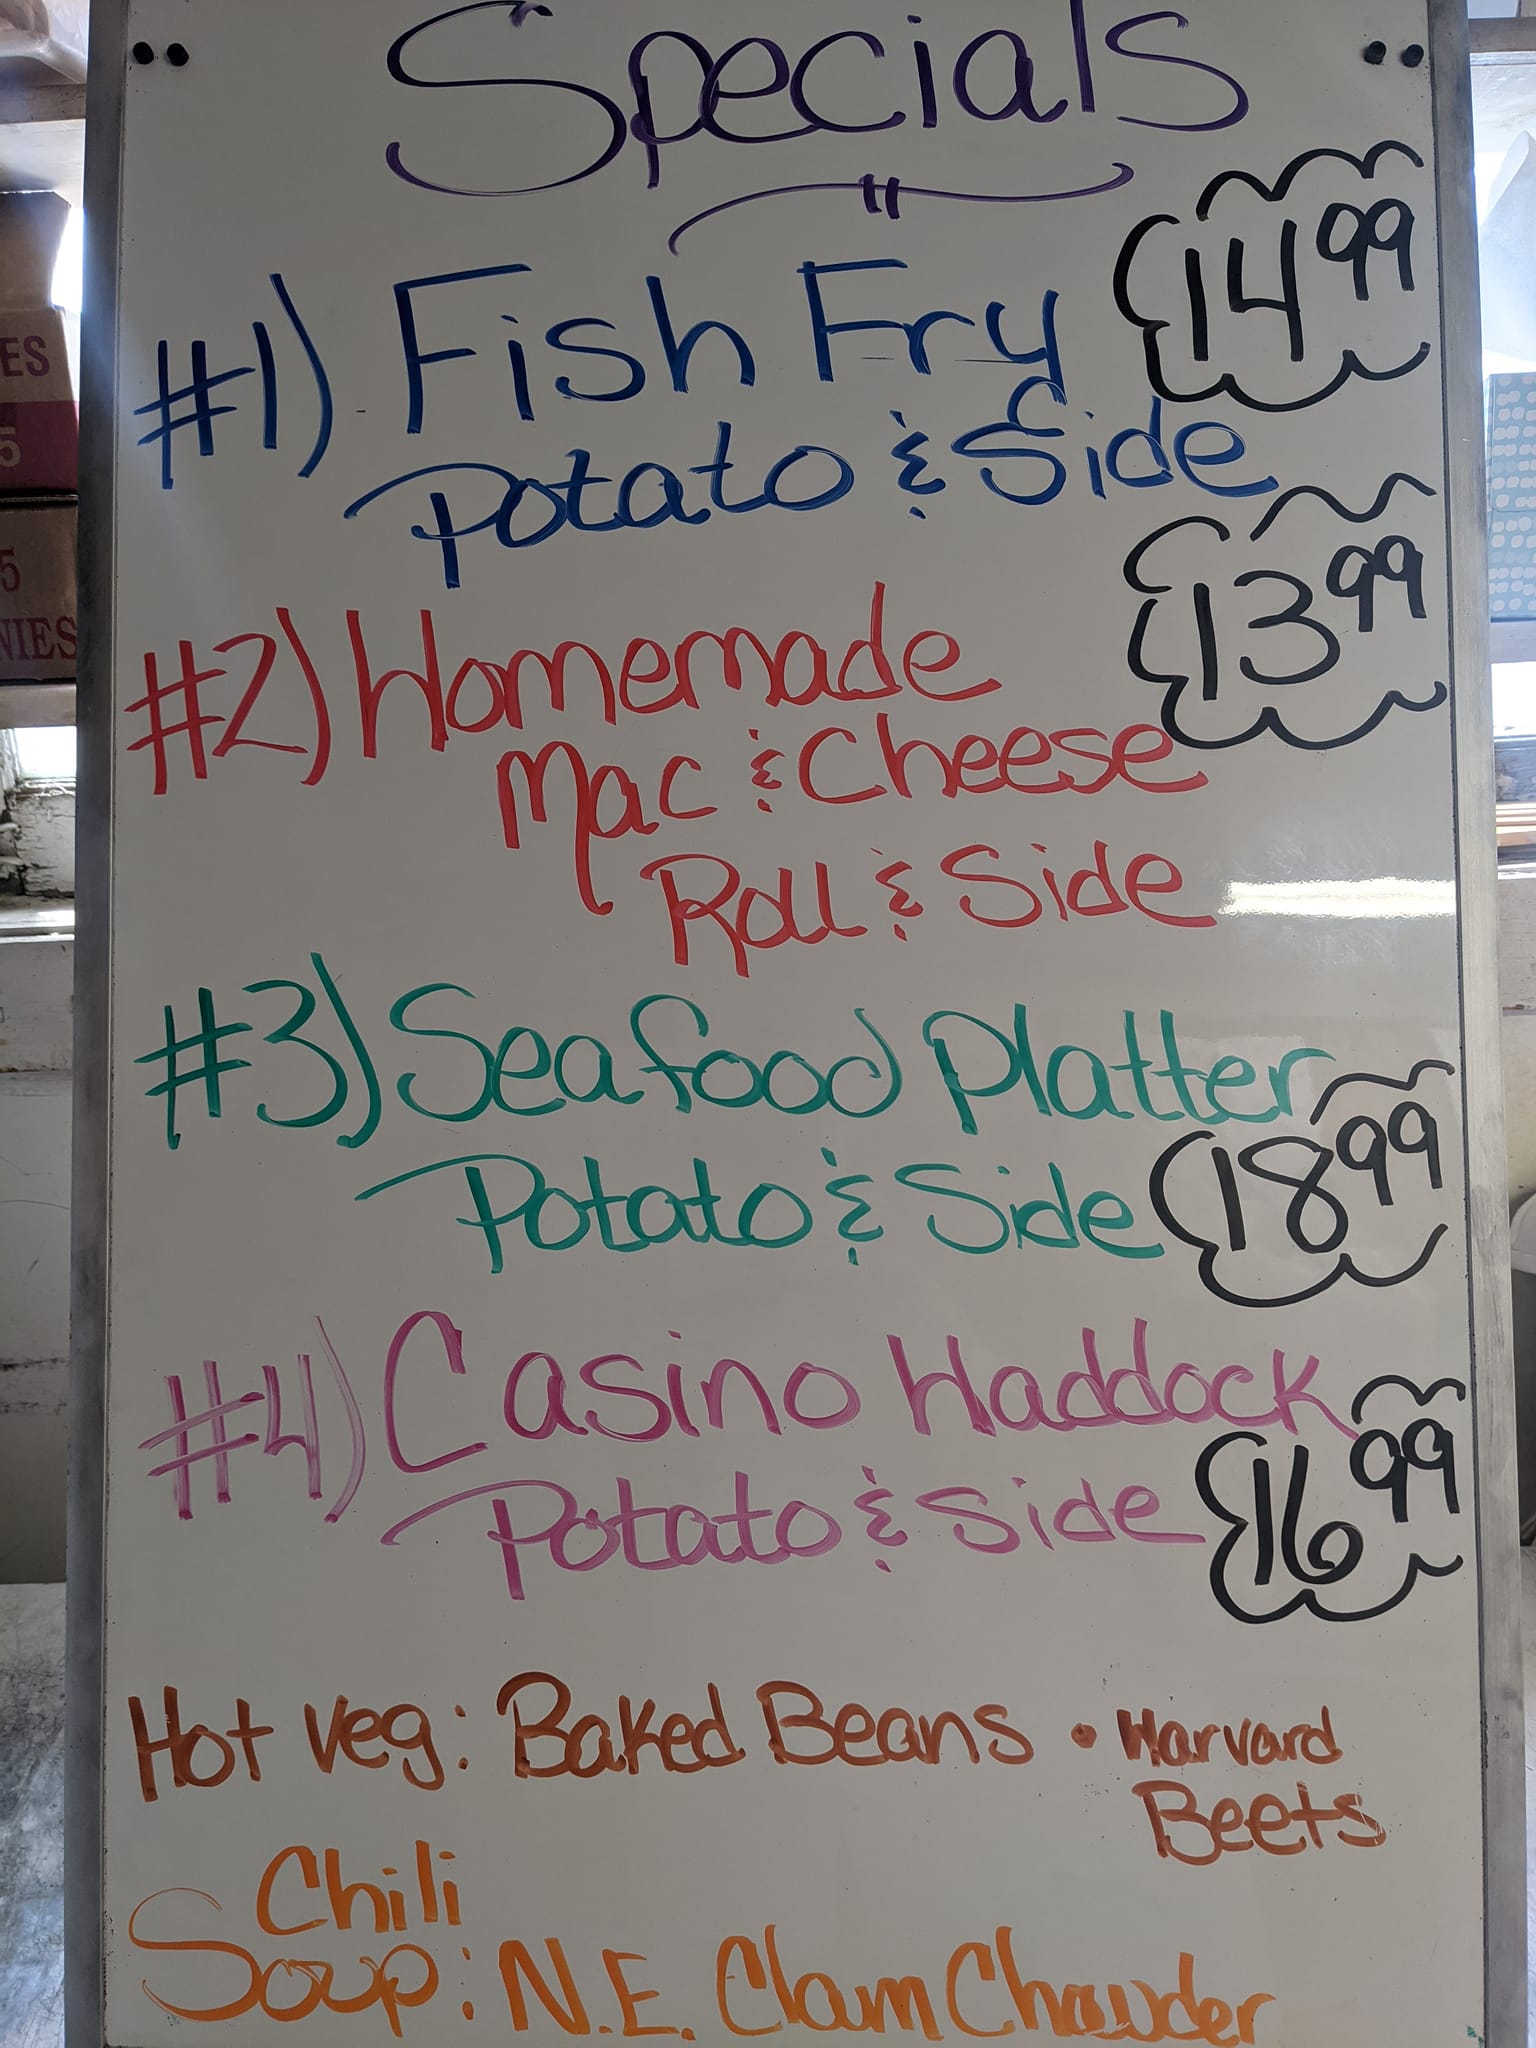 Specials
#1) Fish Fry 14 99
Potato & Side
#2) Homemade 13 99
Mac & Cheese
Roll & Side
#3) Seafood Platter
Potato & Side 18 99
#4) Casino Haddock
Potato & Side 16 99
Hot Veg: Baked Beans • Harvard
Beets
Chili
Soup: N.E. Clam Chowder
ES
5
5
NIES